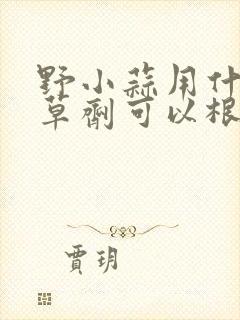 野小蒜用什
草剂可以根
贾玥